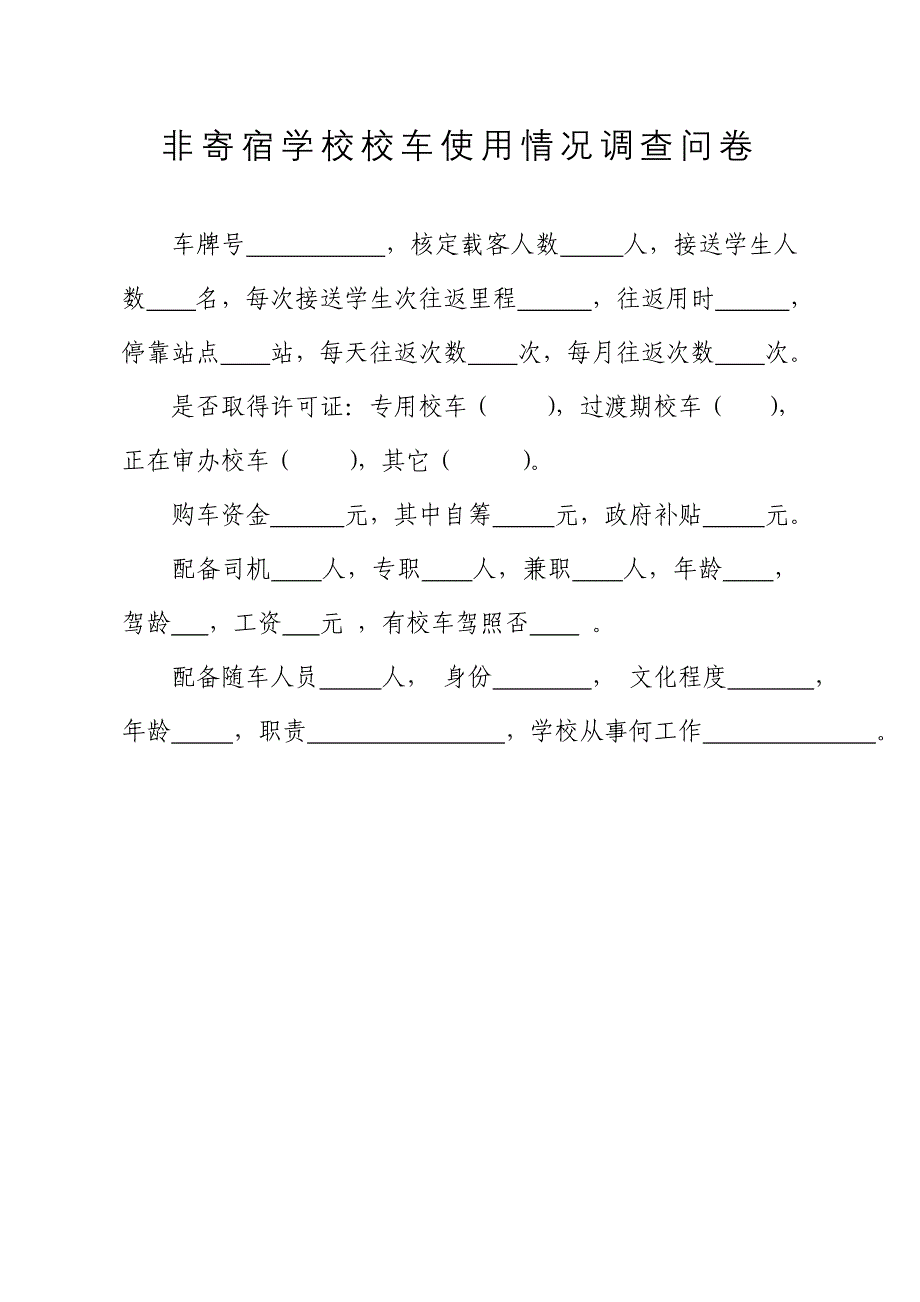 非寄宿学校校车使用情况调查问卷
车牌号___________，核定载客人数_____人，接送学生人
数____名，每次接送学生次往返里程______，往返用时______，
停靠站点____站，每天往返次数____次，每月往返次数____次。
是否取得许可证：专用校车（　　），过渡期校车（　　），
正在审办校车（　　），其它（　　）。
购车资金______元，其中自筹_____元，政府补贴_____元。
配备司机____人，专职____人，兼职____人，年龄____，
驾龄___，工资___元 ，有校车驾照否____ 。
配备随车人员_____人， 身份________， 文化程度_______，
年龄_____，职责________________，学校从事何工作______________。